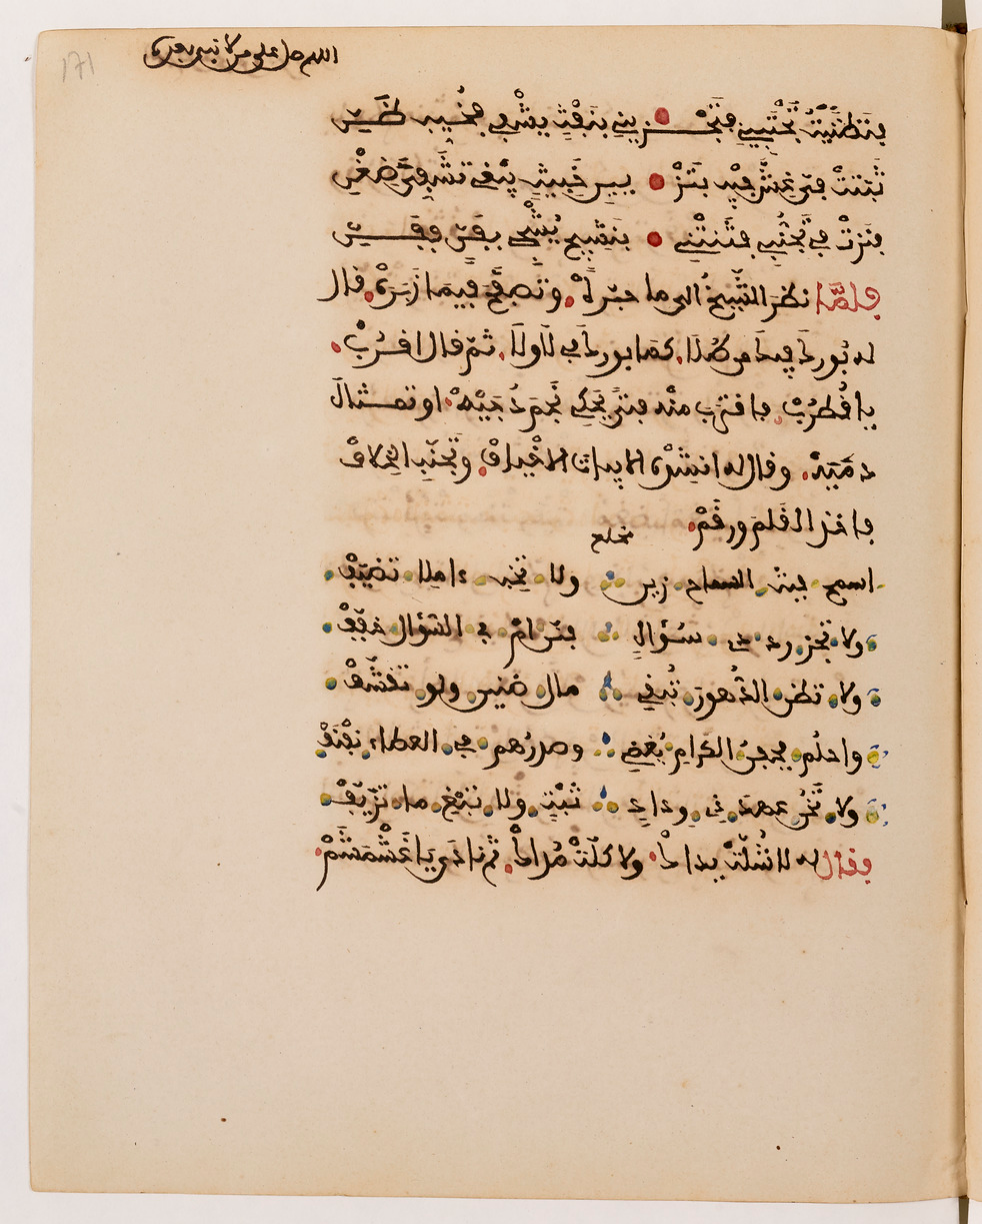 اللهم صل على من لا نبي بعده
171
فَتَظَنَّيْتُ تَجْتَبِينِي فَتَجْزِينِي بِنَفْثٍ يَشْفِي فَخُيِّبَ ظَنِّي
ثَبَّتَتْ فِيَّ غِشَّ جَيْبٍ بِتَزْيِينِ خَبِيثٍ يَبْغِي تَشَفِّيَ ضِغْنِ
فَنَزَتْ فِي تَجَنُّبِي فَثَنَتْنِي بِنَشِيجٍ يُشْجِي بِفَنٍّ فَفَنِّ
فلمّا نظر الشيخ الى ما حبّره، وتصفّح فيما زَبره، قال
له بُورك فيك من طلا، كما بورك في لا ولا، ثمّ قال اقرُبْ
يا قُطرُبْ، فاقترب منه فتىً يحكي نجم دُجيّهْ، او تمثال
دميّهْ، وقال له انشد الابيات الاخيافْ، وتجنّب الخلافْ
فاخذ القلم ورقمْ،
مخلع
اسمح فبث السماح زين ولا تخب ءاملا تضيّفْ
ولا تجز رد ذي سُؤالٍ فنّن امْ في السّؤال خفّفْ
ولا تظن الدُّهورَ تُبقي مال ضنين ولو تقشّفْ
واحلُم فجفنُ الكرام يُغضي وصدرُهم في العطاء نفنفْ
ولا تَخُن عهدَ ذي ودادٍ ثبتٍ ولا تبغ ما تزيّفْ
فقال له لا شُلّتْ يداكْ، ولا كلّتْ مُداكْ، ثم نادى يا عَشَمْشَمْ